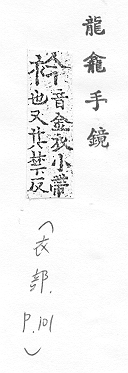 龍龕手鏡
衿音金衣小帶
也又其禁反
(衣部. p.101)